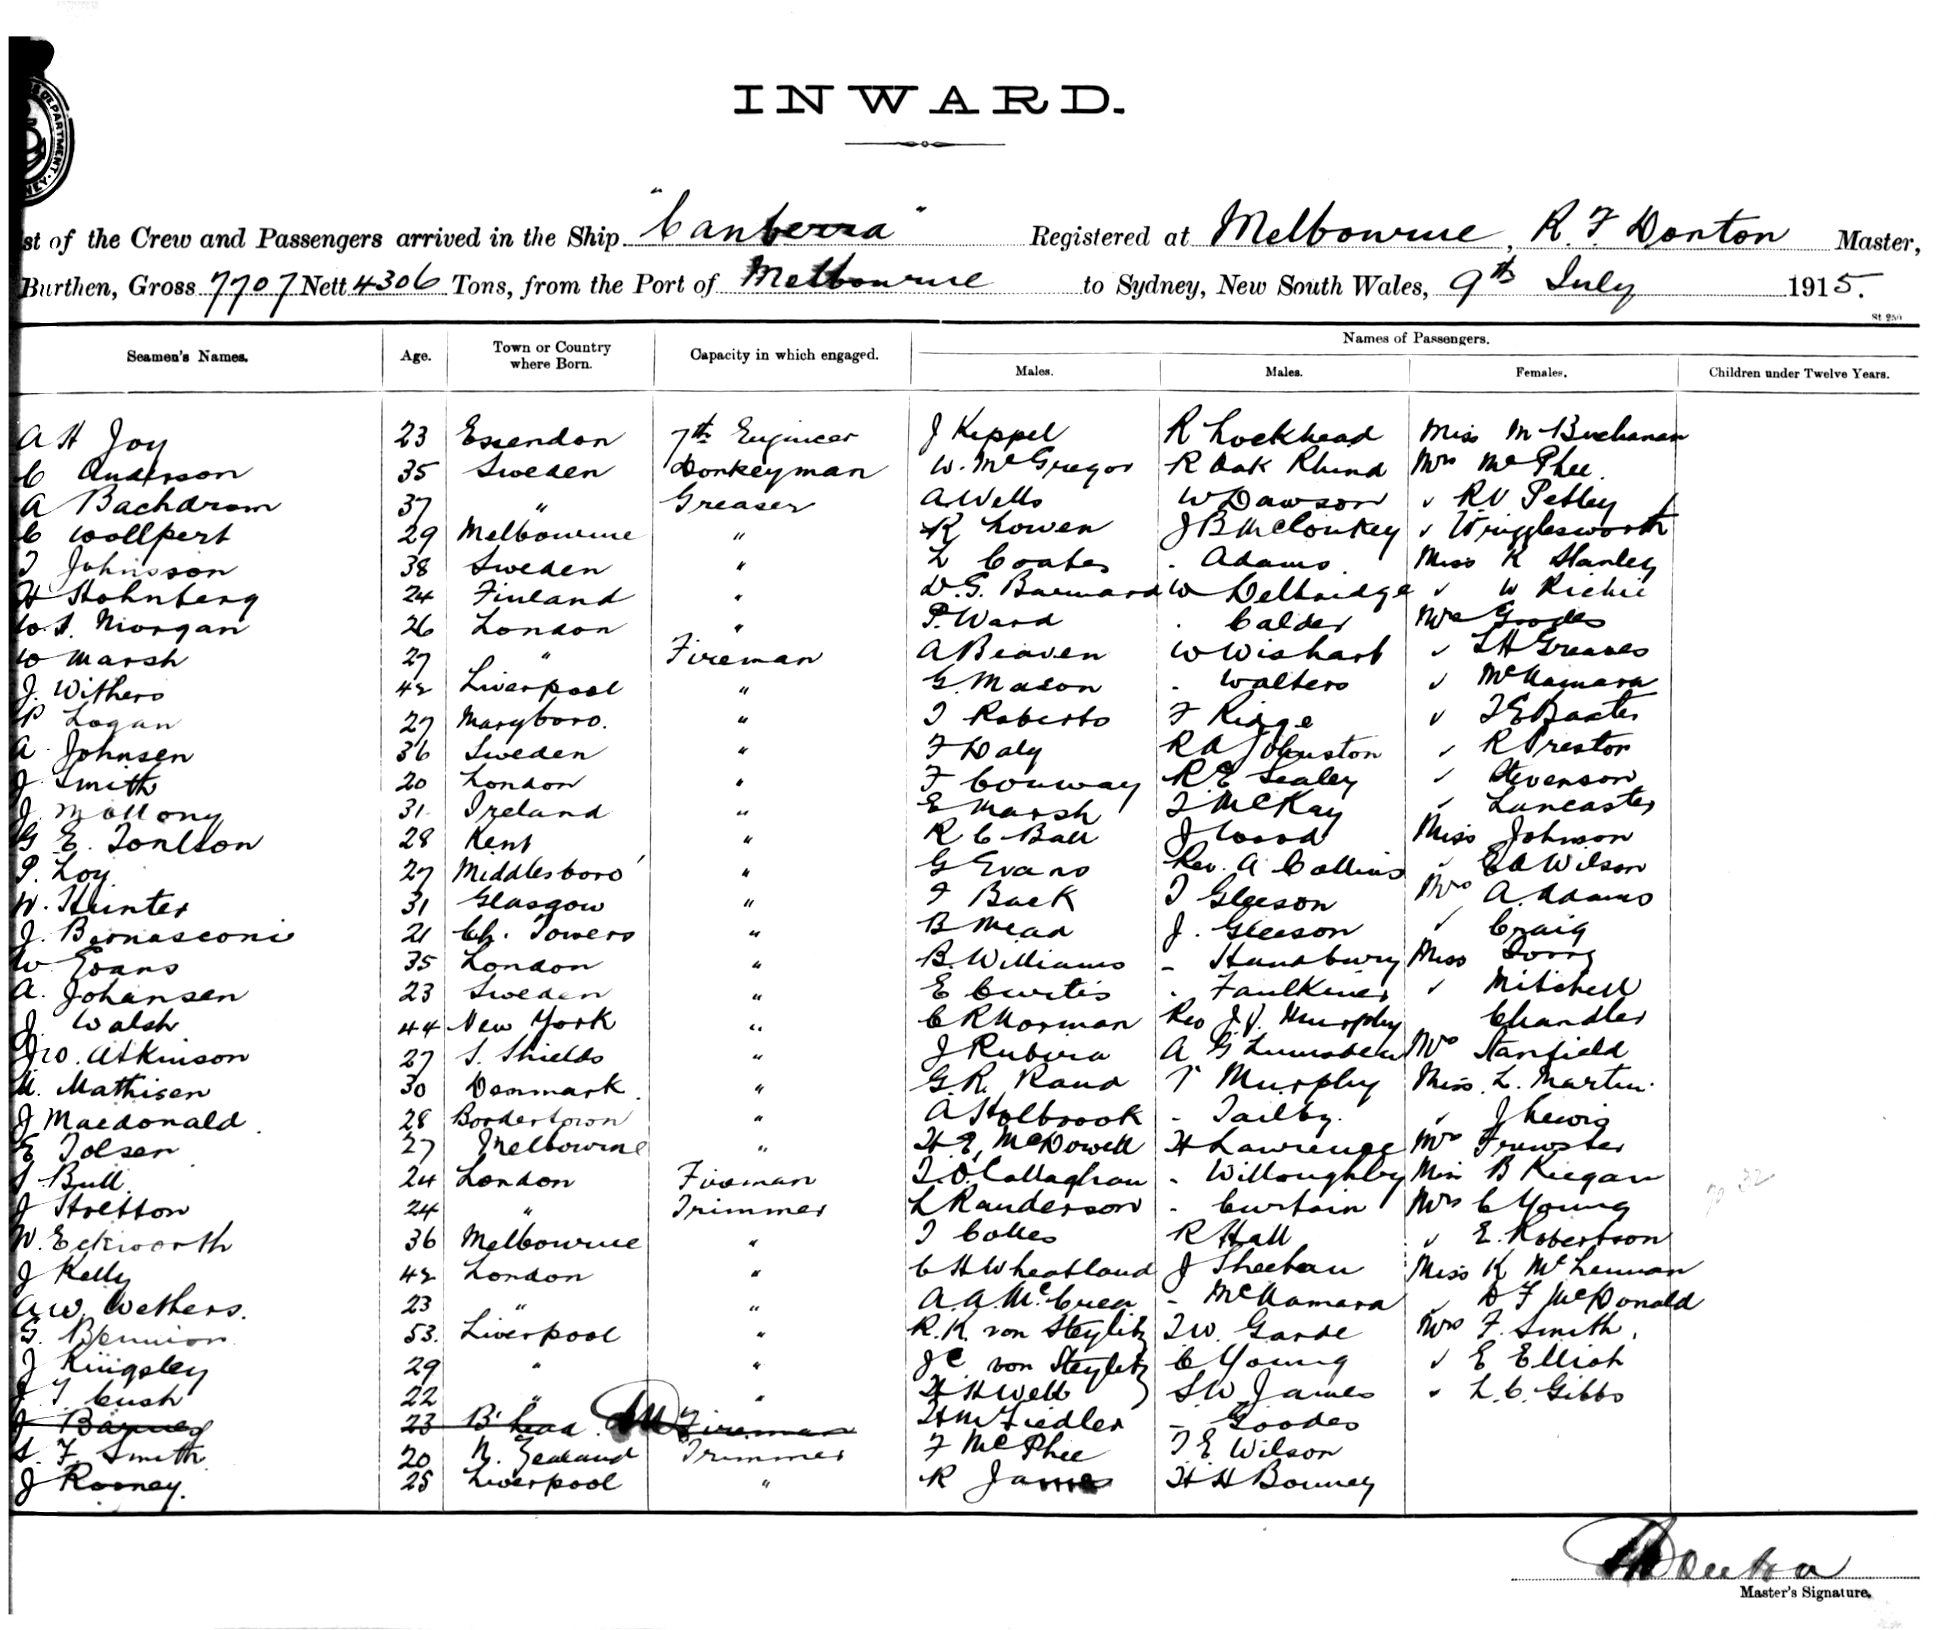 INWARD.
st of the Crew and Passengers arrived in the Ship "Canberra" Registered at Melbourne, R. F Donton Master,
Burthen, Gross 7707 Nett 4306 Tons, from the Port of Melbourne to Sydney, New South Wales, 9th July 1915.
St. 250
Names of Passengers.
Seamen's Names. Age. Town or Country where Born. Capacity in which engaged. Males. Males. Females. Children under Twelve Years.
A H Joy 23 Essendon 7th Engineer J Keppel R Lockhead Miss M Buchanan
C Anderson 35 Sweden Donkeyman W. McGregor R Oak Rhind Mrs McPhee
A Bachdrom 37 " Greaser A Wells W Dawson " R V Petley
C Wollpert 29 Melbourne " R Lowen J B McConkey " Wrigglesworth
J Johnsson 38 Sweden " L Coates - Adams Miss K Stanley
H Stohnberg 24 Finland " D. G. Barnard W Delbridge " W Richie
W. J. Morgan 26 London " P. Ward - Calder Mrs Goodes
W Marsh 27 " Fireman A Beaven W Wishart " L H Greaves
J. Withers 42 Liverpool " G. Mason - Walters " McNamara
P Logan 27 Maryboro. " J Roberts F Ridge " J E Baxter
A Johnsen 36 Sweden " F Daly R A Johnston " R Preston
J Smith 20 London " F Conway R E Sealey " Stevenson
J. Mallony 31 Ireland " E Marsh J McKay " Lancaster
G E. Tonlson 28 Kent " R C Ball J Wood Miss Johnson
P. Loy 27 Middlesboro' " G Evans Rev. A Collins " E A Wilson
W. Hunter 31 Glasgow " F Back J Gleeson Mrs A. Adams
J. Bernasconi 21 Ch. Towers " B Mead J. Gleeson " Craig
W Evans 35 London " B. Williams - Handbury Miss
A. Johansen 23 Sweden " E Curtis - Faulkiner " Mitchell
J. Walsh 44 New York " C R Norman Rev J. J. Murphy Chandler
J. W. Atkinson 27 S. Shields " J Rubira A G Lumsden Mrs Stanfield
M. Mathisen 30 Denmark " G. R. Rand T Murphy Miss L. Martin
J Macdonald. 28 Bordertown " A Holbrook - Tailby. " J Lewis
E Tolsen 27 Melbourne " H E, McDowell H Lawrence Mrs Frewster
J Bull 24 London Fireman J. O'Callaghan - Willoughby Miss B Kiegan
J Stretton 24 " Trimmer L Randerson - Curtain Mrs C Young
W. Eckworth 36 Melbourne " J Colles R Hall " E. Robertson
J Kelly 42 London " C H Wheatland J Sheehan Miss K McLennan
A W. Wethers. 23 " " A. A. McCrea - McNamara " D F McDonald
G. Bennion 53. Liverpool " R. K. von Steylitz J W. Garde Mrs F. Smith.
J Kingsley 29 " " J C von Steylitz C Young " E Elliot
J T Cush 22 " " H H Webb S W James " L. C. Gibbs
J Barnes 23 B'head Fireman H M Fiedler - Goodes
S. F. Smith 20 N. Zealand Trimmer F McPhee J E Wilson
J Rooney. 25 Liverpool " R James H H Bonney
Donton
Master's Signature.